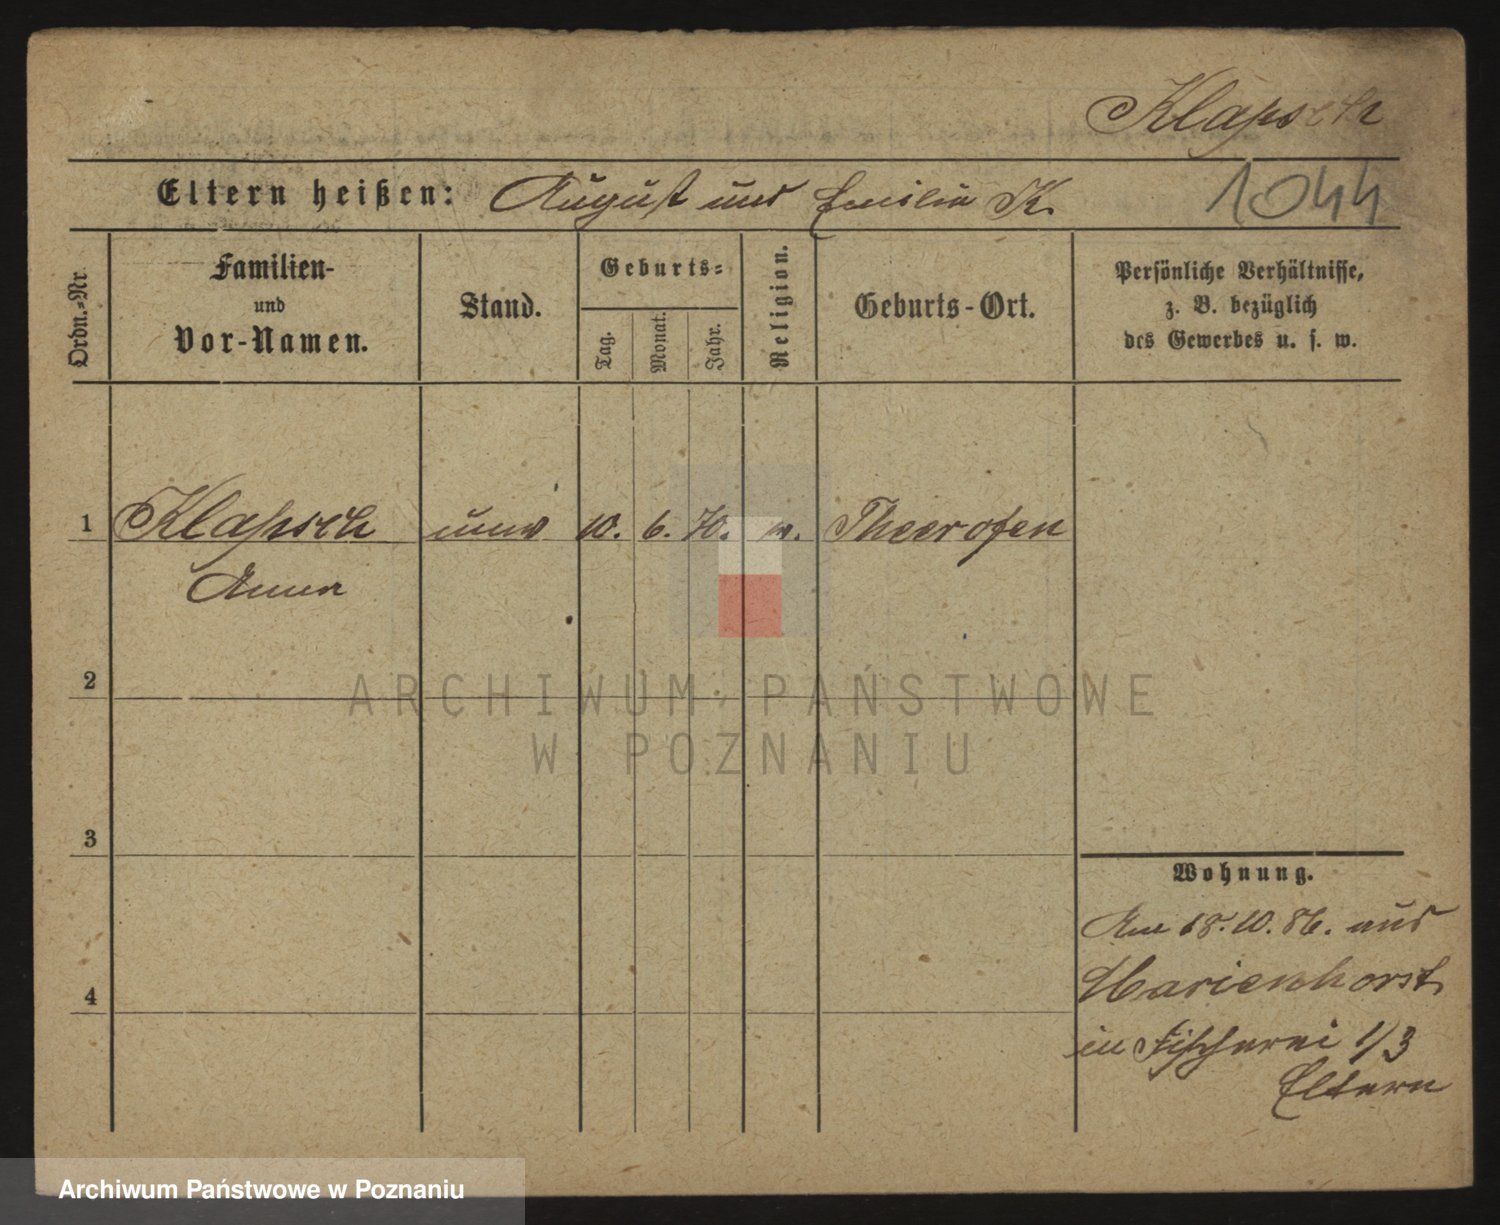 Klapsch
Eltern heißen: August und Emilie K. 1044
Ordn.-Nr.
Familien-
und
Vor-Namen.
Stand.
Geburts-
Tag.
Monat.
Jahr.
Religion.
Geburts-Ort.
Persönliche Verhältnisse,
z. B. bezüglich
des Gewerbes u. s. w.
1 Klapsch unv 10. 6. 70. Theerofen
Anna
2
ARCHIWUM PAŃSTWOWE
W POZNANIU
3
Wohnung.
Am 18. 10. 86. aus
4
Marienhorst
in Fischerei 1/3
Eltern
Archiwum Państwowe w Poznaniu